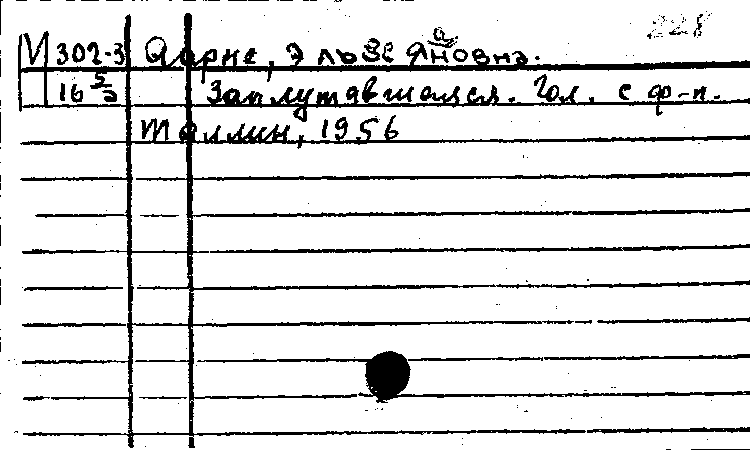 228
М 302-3 Аарне, Эльзе Яновна.
16 5/2 Заплутавшаяся. Гол. с ф-п.
Таллин, 1956